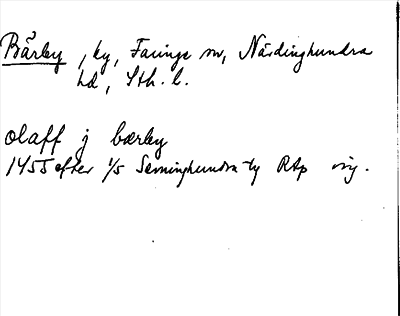 Bärby, by, Faringe sn, Närdinghundra
hd, Sth. l.
olaff j bærby
1455 efter 1/5 Seminghundra-ty RAp orig.